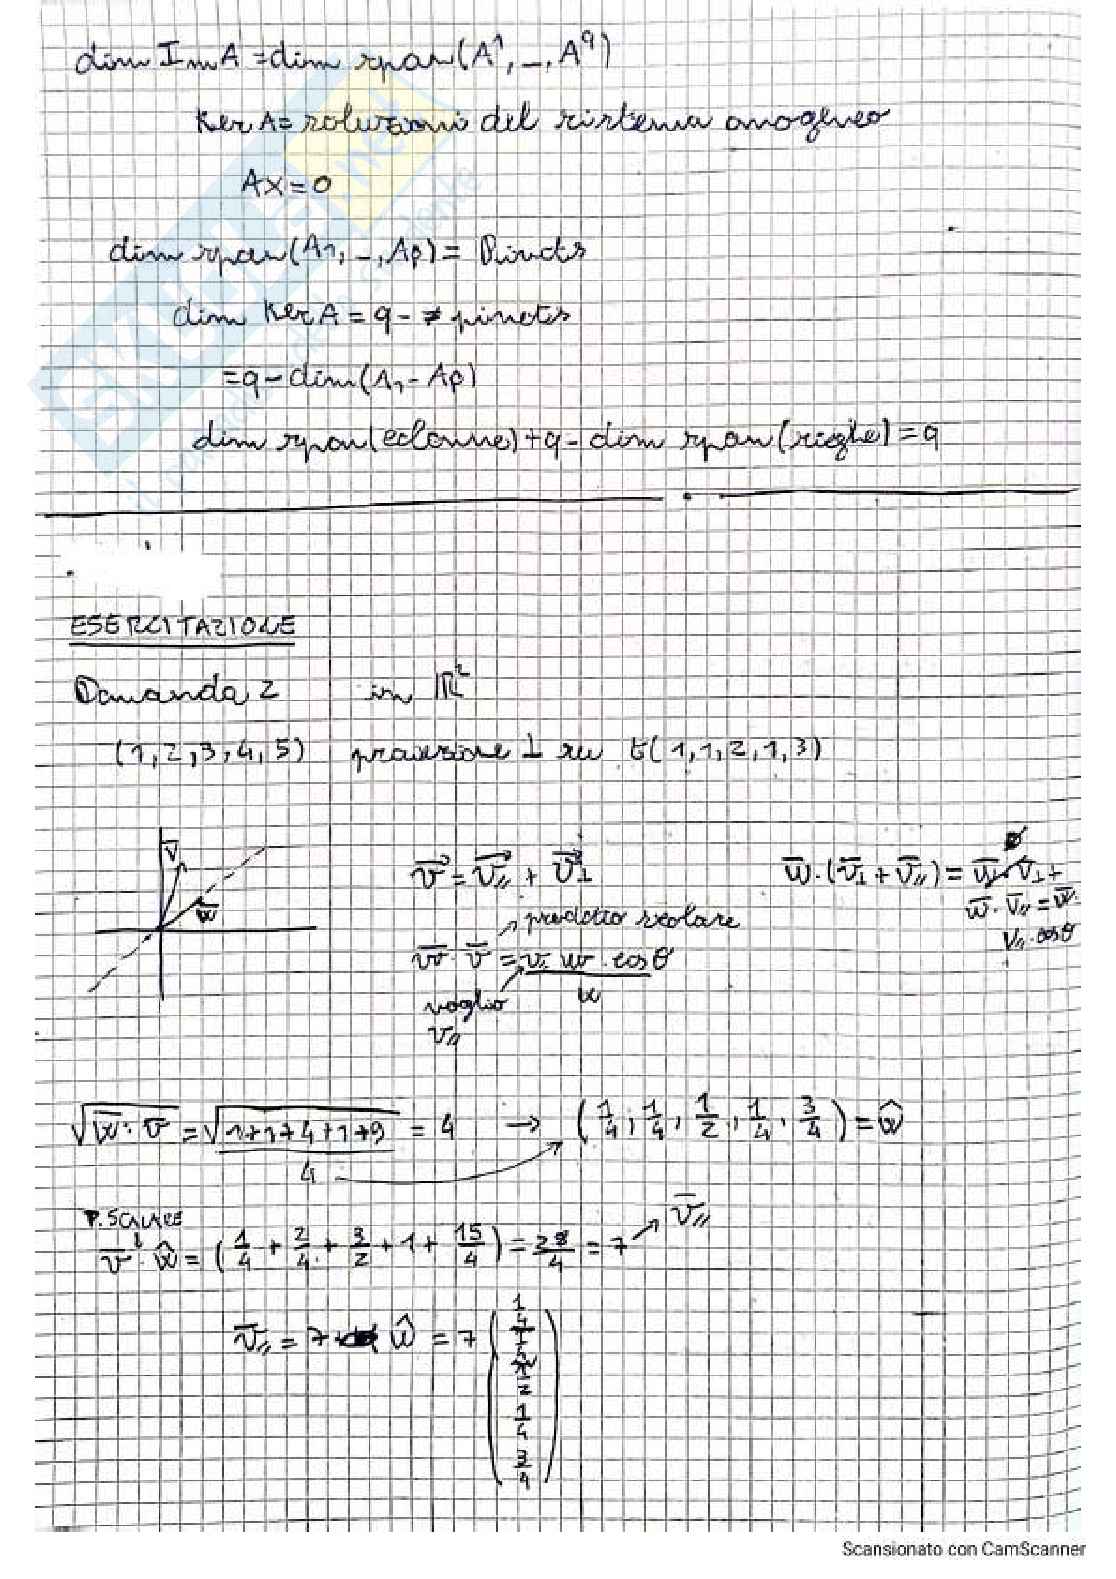 dim Im A = dim span(A¹, _, A^q)
Ker A = soluzioni del sistema omogeneo
AX = 0
dim span(A1, _, Ap) = Pivots
dim Ker A = q - # pivots
= q - dim(A1 - Ap)
dim span(colonne) + q - dim span(righe) = q
ESERCITAZIONE
Domanda 2 in ℝ²
(1, 2, 3, 4, 5) proiezione ⊥ su t(1, 1, 2, 1, 3)
v̄
w̄
v̄ = v̄∥ + v̄⊥
w̄ · (v̄⊥ + v̄∥) = w̄ · v̄⊥ +
w̄ · v̄∥ = w̄ ·
v∥ · cosθ
prodotto scalare
w̄ · v̄ = v · w · cosθ
w
voglio
v∥
√(w̄ · v̄) = √(1+1+4+1+9) = 4 → (1/4, 1/4, 1/2, 1/4, 3/4) = ŵ
4
P. SCALARE
v̄ · ŵ = (1/4 + 2/4 + 3/2 + 1 + 15/4) = 28/4 = 7 → v̄∥
v̄∥ = 7 ŵ = 7 (1/4 1/4 1/2 1/4 3/4)
Scansionato con CamScanner